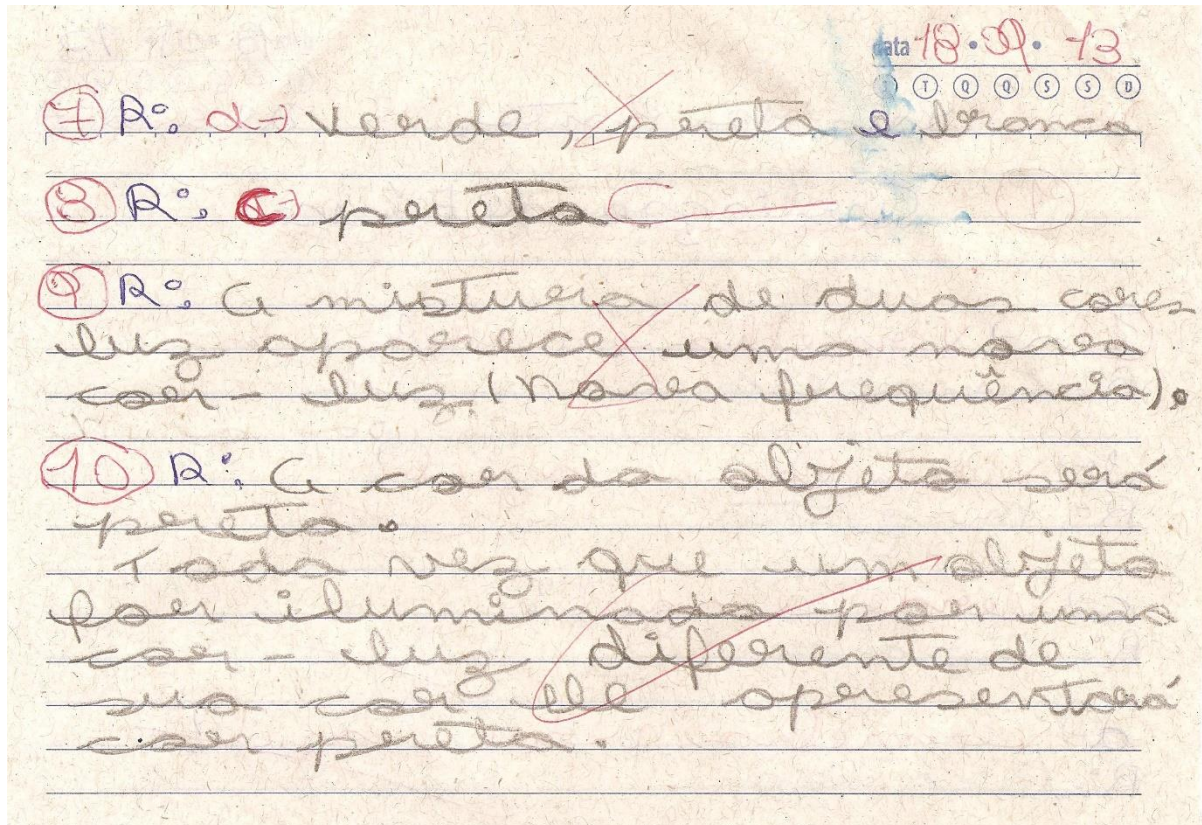 data 18 · 09 · 13
T Q Q S S D
7 R: d→ Verde, preta e branca
8 R: c→ preta
9 R: A mistura de duas cores
luz aparece uma nova
cor-luz (nova frequência).
10 R: A cor do objeto será
preta.
Toda vez que um objeto
for iluminado por uma
cor-luz diferente de
sua cor ele apresentará
cor preta.